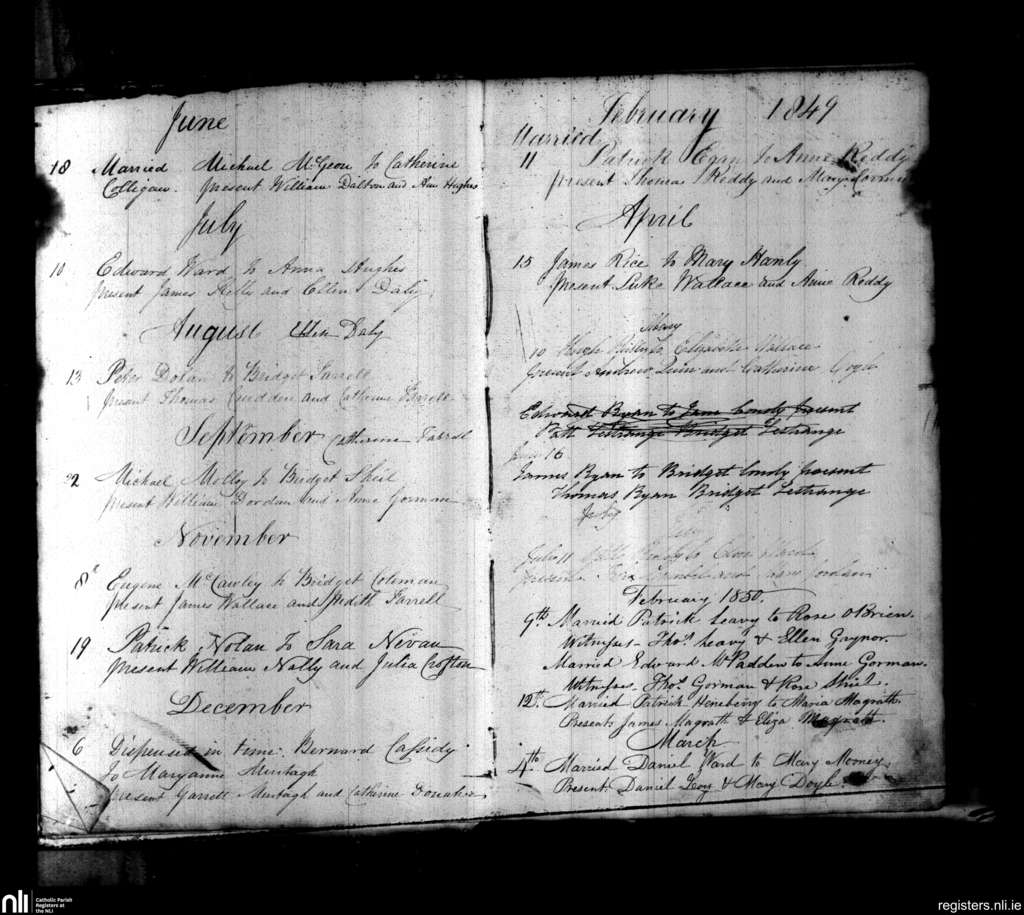 June
18 Married Michael McGeon to Catherine
Colligan. present William Dalton and Ann Hughes
July
10 Edward Ward to Anna Hughes
present James Kelly and Ellen Daly
August Ellen Daly
13 Peter Dolan to Bridget Farrell
present Thomas and Catherine Farrell
September Catherine Farrell
22 Michael Molloy to Bridget Shiel
present William Dordan and Anne Gorman
November
8th Eugene McCawley to Bridget Coleman
present James Wallace and Judith Farrell
19 Patrick Nolan to Sara Nevan
present William Nally and Julia Crofton
December
6 Dispensed in time. Bernard Cassidy
to Maryanne Murtagh
present Garrett Murtagh and Catherine Donahoe
February 1849
Married
11 Patrick Egan to Anne Reddy
present Thomas Reddy and Mary
April
15 James Rice to Mary Hanly
present Luke Wallace and Anne Reddy
10 Hugh to Elizabeth Wallace
present Andrew Quin and Catherine
Edward Ryan to Jane Londy present
Patt Lestrange Bridget Lestrange
June 16
James Ryan to Bridget Londy present
Thomas Ryan Bridget Lestrange
July
July
present and Jane Jordan
February 1850.
9th. Married Patrick Leavy to Rose O'Brien.
Witnesses - Thos. Leavy & Ellen Gaynor.
Married Edward McPadden to Anne Gorman.
Witnesses - Thos. Gorman & Rose Shiel.
12th. Married Patrick Heneberry to Maria Magrath
Present: James Magrath & Eliza Magrath.
March
4th. Married Daniel Ward to Mary Mooney.
Present: Daniel & Mary Doyle.
nli
Catholic Parish
Registers at
the NLI
registers.nli.ie